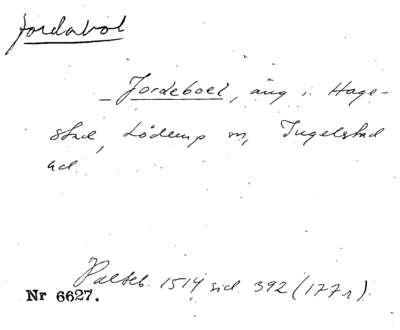 Jordabol
_ Jordeboel, äng i Hage-
stad, Löderup sn, Ingelstad
hd
Palteb. 1514 sid 392 (177r).
Nr 6627.